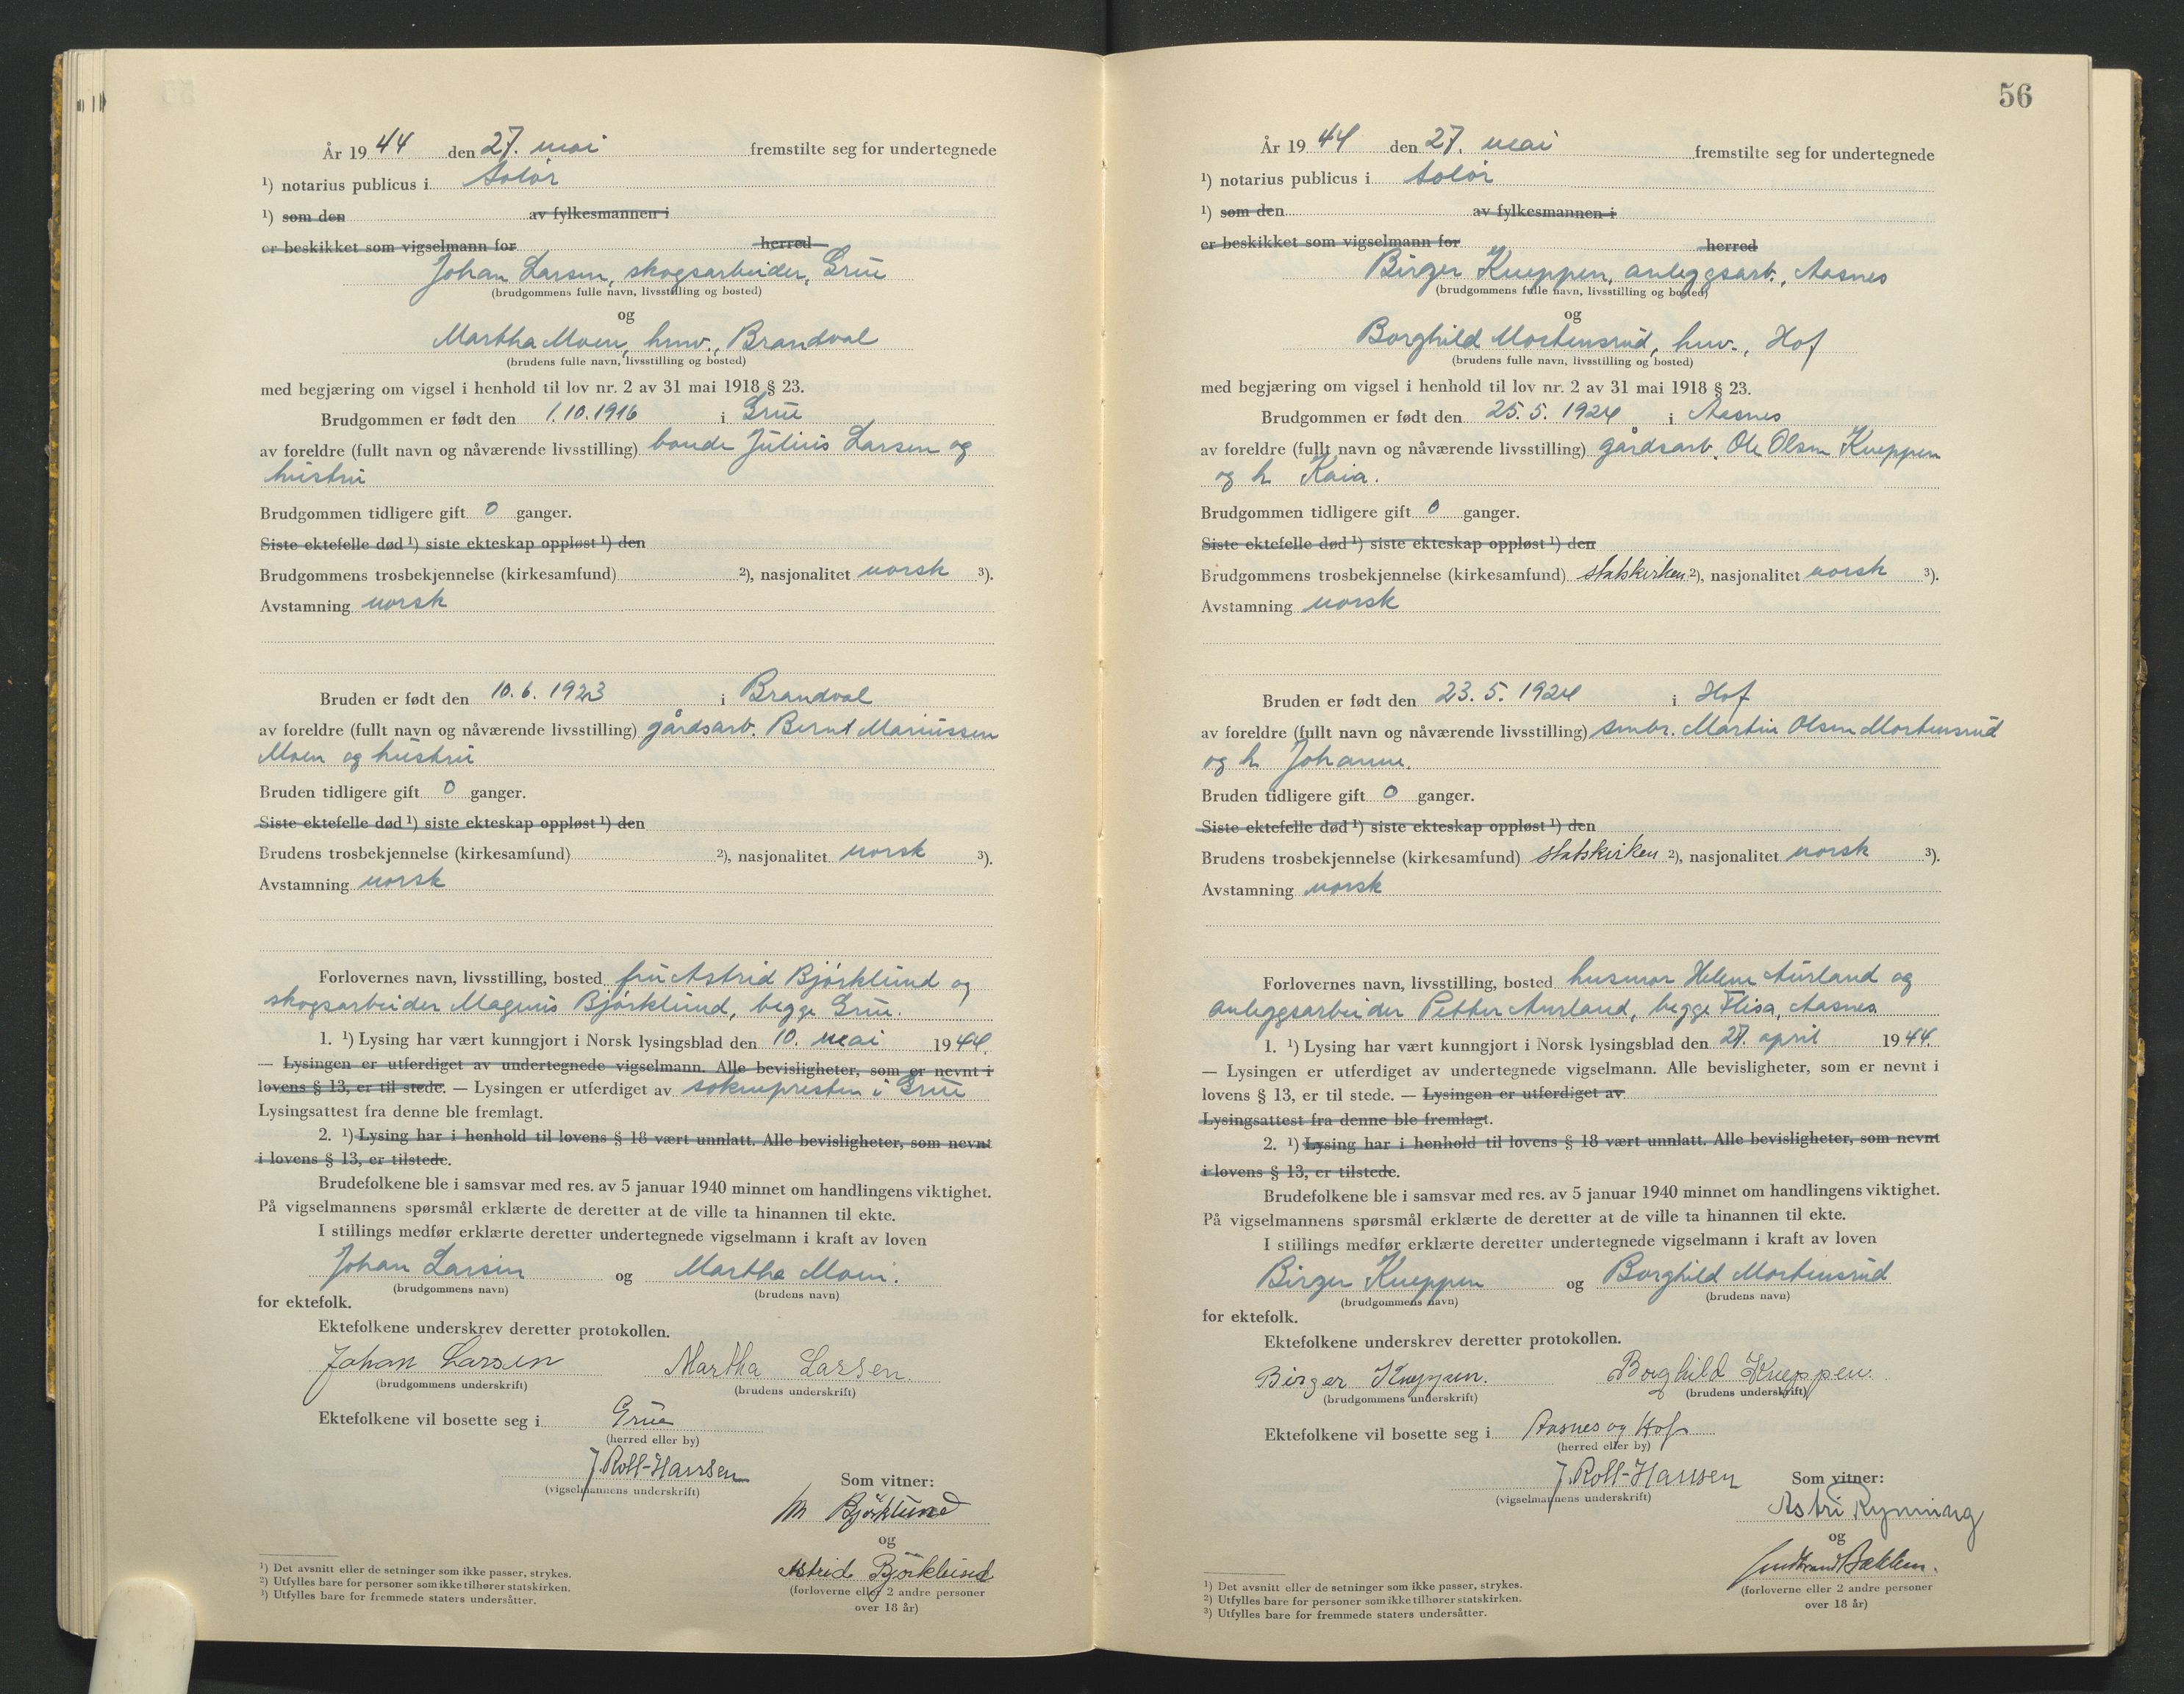 År 1944 den 27. mai fremstilte seg for undertegnede
¹) notarius publicus i Solør
¹) som den av fylkesmannen i
er beskikket som vigselmann for herred
Johan Larsen, skogsarbeider, Grue
(brudgommens fulle navn, livsstilling og bosted)
og
Martha Moen, hmv., Brandval
(brudens fulle navn, livsstilling og bosted)
med begjæring om vigsel i henhold til lov nr. 2 av 31 mai 1918 § 23.
Brudgommen er født den 1.10.1916 i Grue
av foreldre (fullt navn og nåværende livsstilling) bonde Julius Larsen og
hustru
Brudgommen tidligere gift 0 ganger.
Siste ektefelle død ¹) siste ekteskap oppløst ¹) den
Brudgommens trosbekjennelse (kirkesamfund) ²), nasjonalitet norsk ³).
Avstamning norsk
Bruden er født den 10.6.1923 i Brandval
av foreldre (fullt navn og nåværende livsstilling) gårdsarb. Bernt Mariussen
Moen og hustru
Bruden tidligere gift 0 ganger.
Siste ektefelle død ¹) siste ekteskap oppløst ¹) den
Brudens trosbekjennelse (kirkesamfund) ²), nasjonalitet norsk ³).
Avstamning norsk
Forlovernes navn, livsstilling, bosted fru Astrid Bjørklund og
skogsarbeider Magnus Bjørklund, begge Grue.
1. ¹) Lysing har vært kunngjort i Norsk lysingsblad den 10. mai 1944.
— Lysingen er utferdiget av undertegnede vigselmann. Alle bevisligheter, som er nevnt i
lovens § 13, er til stede. — Lysingen er utferdiget av soknepresten i Grue
Lysingsattest fra denne ble fremlagt.
2. ¹) Lysing har i henhold til lovens § 18 vært unnlatt. Alle bevisligheter, som nevnt
i lovens § 13, er tilstede.
Brudefolkene ble i samsvar med res. av 5 januar 1940 minnet om handlingens viktighet.
På vigselmannens spørsmål erklærte de deretter at de ville ta hinannen til ekte.
I stillings medfør erklærte deretter undertegnede vigselmann i kraft av loven
Johan Larsen og Martha Moen.
(brudgommens navn) (brudens navn)
for ektefolk.
Ektefolkene underskrev deretter protokollen.
Johan Larsen Martha Larsen.
(brudgommens underskrift) (brudens underskrift)
Ektefolkene vil bosette seg i Grue
(herred eller by)
J. Roll-Hansen
(vigselmannens underskrift)
Som vitner:
M Bjørklund
og
Astrid Bjørklund
(forloverne eller 2 andre personer
over 18 år)
¹) Det avsnitt eller de setninger som ikke passer, strykes.
²) Utfylles bare for personer som ikke tilhører statskirken.
³) Utfylles bare for fremmede staters undersåtter.
56
År 1944 den 27. mai fremstilte seg for undertegnede
¹) notarius publicus i Solør
¹) som den av fylkesmannen i
er beskikket som vigselmann for herred
Birger Kneppen, anleggsarb., Aasnes
(brudgommens fulle navn, livsstilling og bosted)
og
Borghild Mortensrud, hmv., Hof
(brudens fulle navn, livsstilling og bosted)
med begjæring om vigsel i henhold til lov nr. 2 av 31 mai 1918 § 23.
Brudgommen er født den 25.5.1924 i Aasnes
av foreldre (fullt navn og nåværende livsstilling) gårdsarb. Ole Olsen Kneppen
og h. Kaia.
Brudgommen tidligere gift 0 ganger.
Siste ektefelle død ¹) siste ekteskap oppløst ¹) den
Brudgommens trosbekjennelse (kirkesamfund) statskirken ²), nasjonalitet norsk ³).
Avstamning norsk
Bruden er født den 23.5.1924 i Hof
av foreldre (fullt navn og nåværende livsstilling) smbr. Martin Olsen Mortensrud
og h. Johanne.
Bruden tidligere gift 0 ganger.
Siste ektefelle død ¹) siste ekteskap oppløst ¹) den
Brudens trosbekjennelse (kirkesamfund) statskirken ²), nasjonalitet norsk ³).
Avstamning norsk
Forlovernes navn, livsstilling, bosted husmor Helene Aurland og
anleggsarbeider Petter Aurland, begge Flisa, Aasnes
1. ¹) Lysing har vært kunngjort i Norsk lysingsblad den 27. april 1944.
— Lysingen er utferdiget av undertegnede vigselmann. Alle bevisligheter, som er nevnt i
lovens § 13, er til stede. — Lysingen er utferdiget av
Lysingsattest fra denne ble fremlagt.
2. ¹) Lysing har i henhold til lovens § 18 vært unnlatt. Alle bevisligheter, som nevnt
i lovens § 13, er tilstede.
Brudefolkene ble i samsvar med res. av 5 januar 1940 minnet om handlingens viktighet.
På vigselmannens spørsmål erklærte de deretter at de ville ta hinannen til ekte.
I stillings medfør erklærte deretter undertegnede vigselmann i kraft av loven
Birger Kneppen og Borghild Mortensrud
(brudgommens navn) (brudens navn)
for ektefolk.
Ektefolkene underskrev deretter protokollen.
Birger Kneppen. Borghild Kneppen.
(brudgommens underskrift) (brudens underskrift)
Ektefolkene vil bosette seg i Aasnes og Hof
(herred eller by)
J. Roll-Hansen
(vigselmannens underskrift)
Som vitner:
Astri Rynning
og
Gudbrand Bekken.
(forloverne eller 2 andre personer
over 18 år)
¹) Det avsnitt eller de setninger som ikke passer, strykes.
²) Utfylles bare for personer som ikke tilhører statskirken.
³) Utfylles bare for fremmede staters undersåtter.